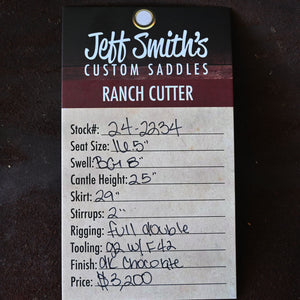 Jeff Smith's
CUSTOM SADDLES
RANCH CUTTER
Stock#: 24-2234
Seat Size: 16.5"
Swell: BG+ 8"
Cantle Height: 2.5"
Skirt: 29"
Stirrups: 2"
Rigging: full double
Tooling: g2 w/ F42
Finish: dk chocolate
Price: $3,200